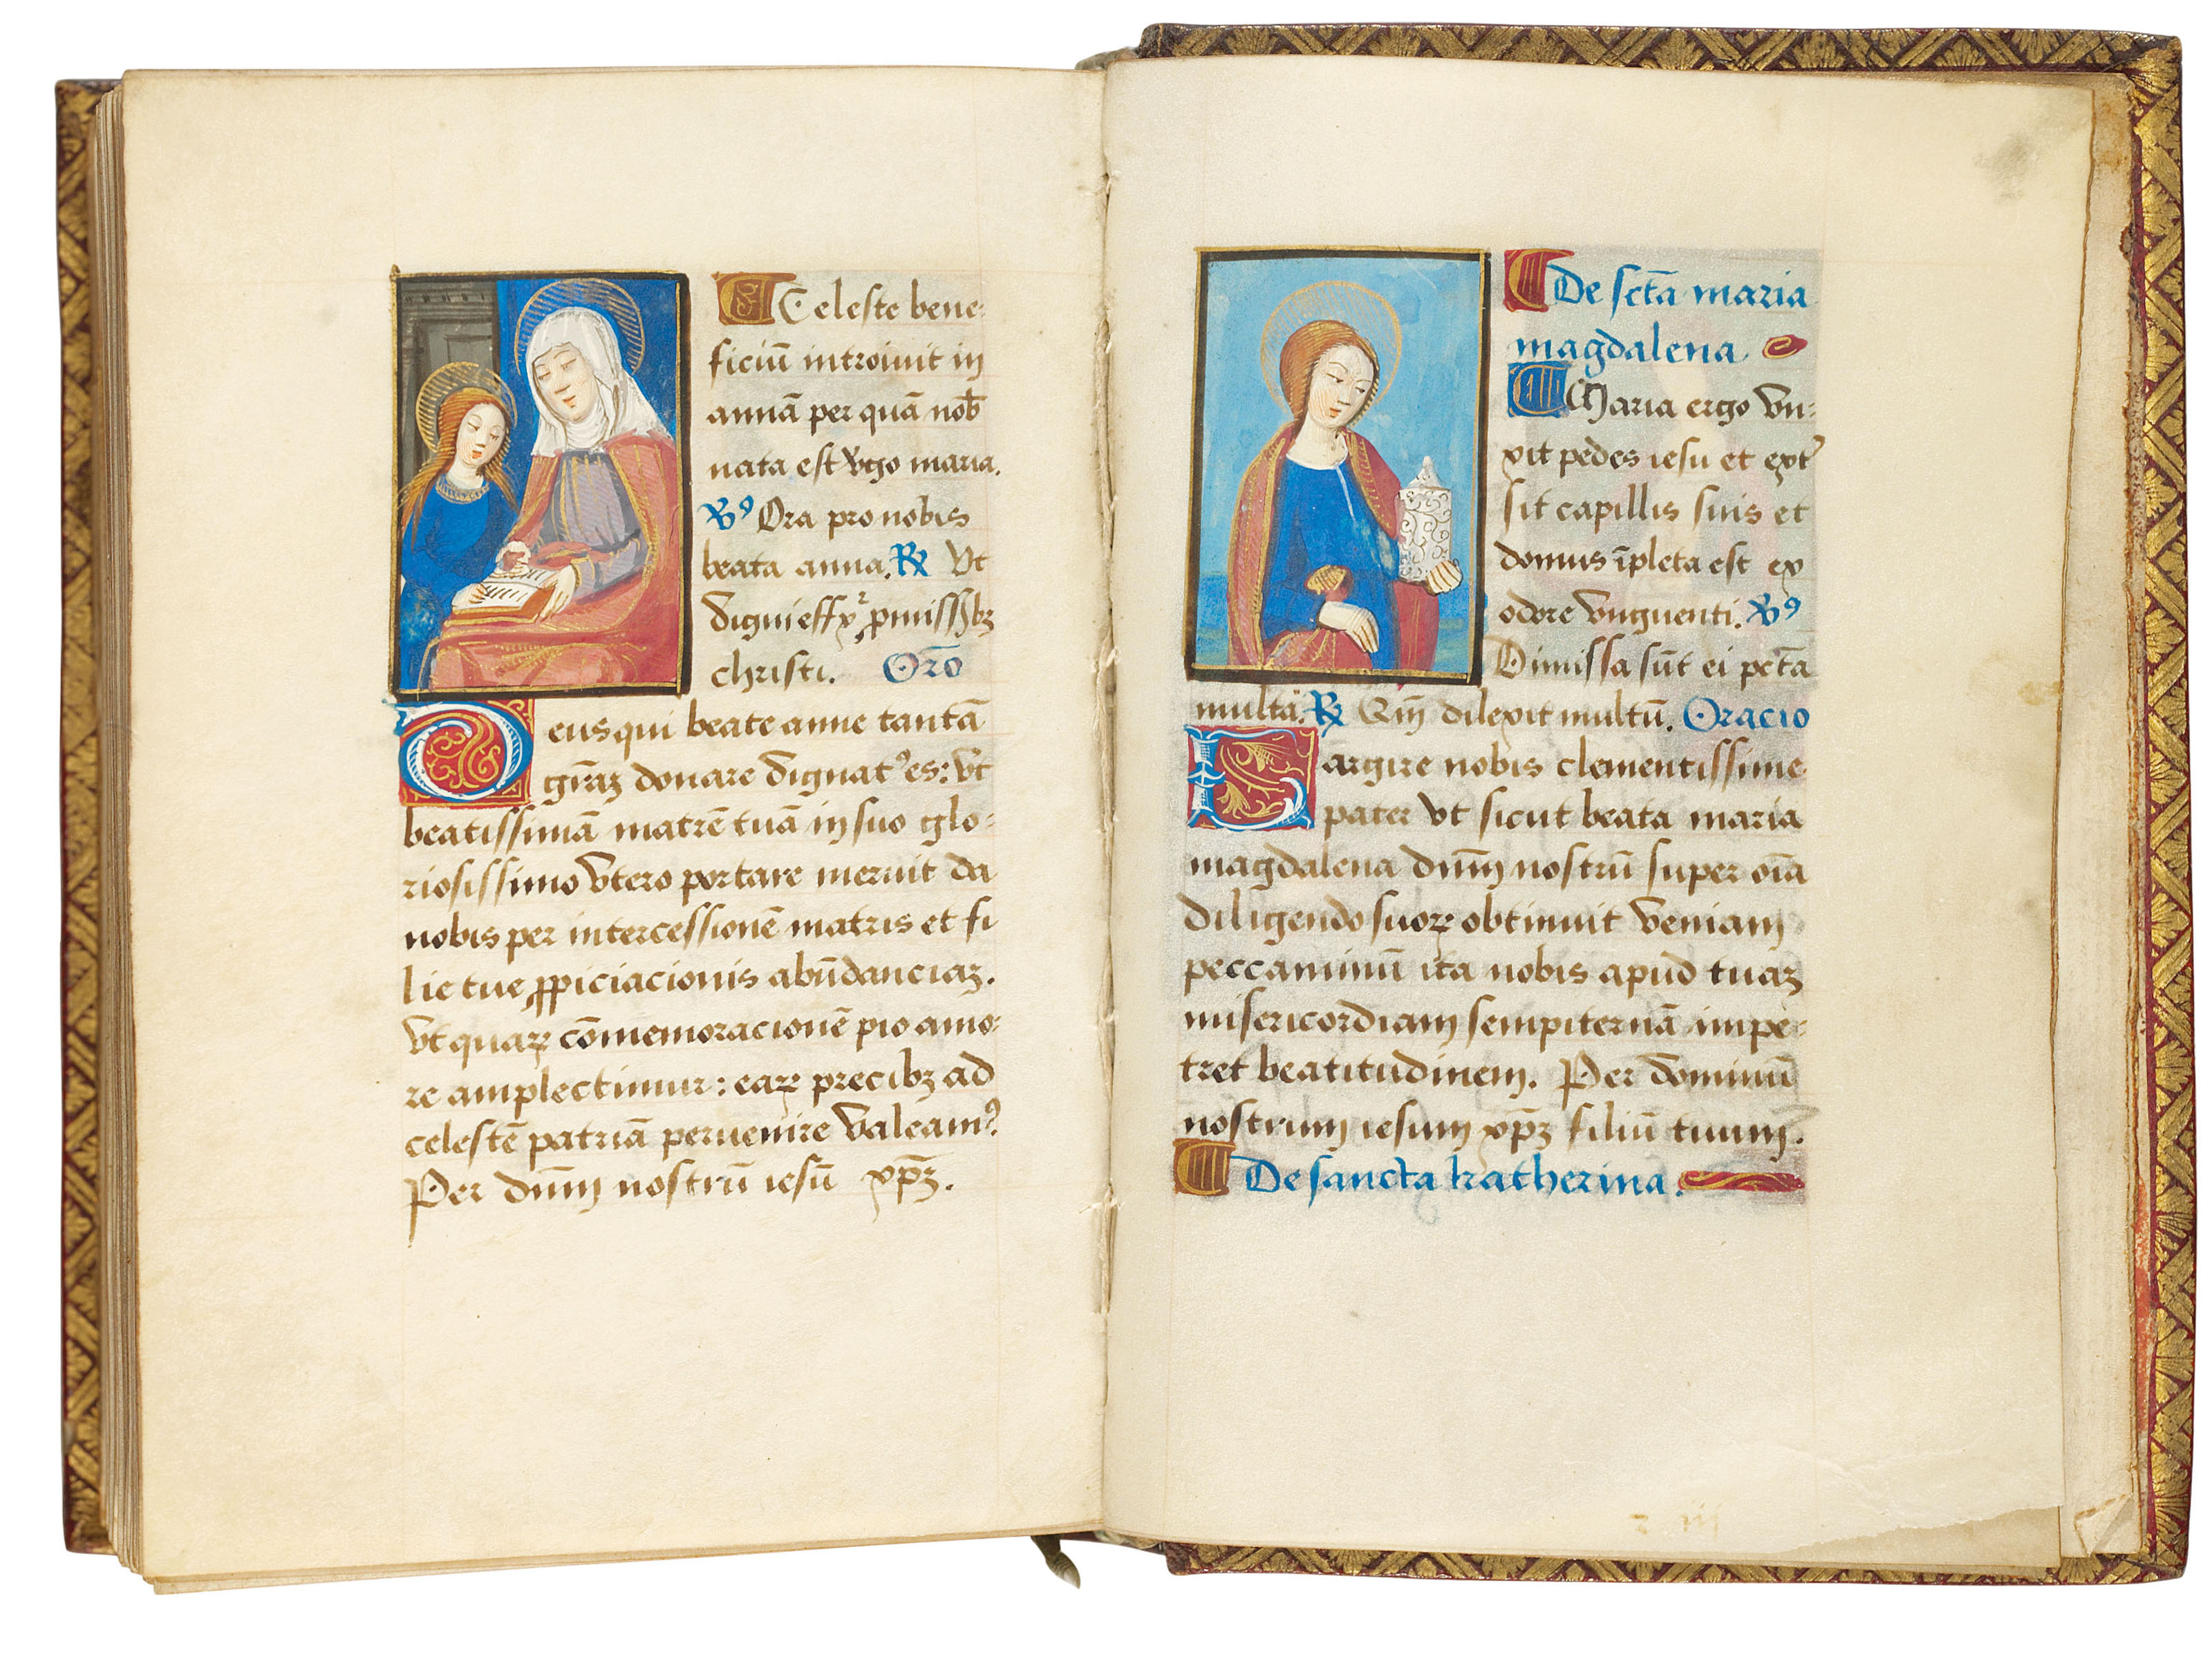 Celeste bene-
ficiū introiuit in
annā per quā nob̄
nata est v̓go maria.
℣ Ora pro nobis
beata anna. ℟ Vt
digni eff
christi. Orō
Deus qui beate anne tantā
gr̄aꝫ donare dignatꝰ es: vt
beatissimā matrē tuā in suo glo-
riosissimo vtero portare meruit da
nobis per intercessionē matris et fi
lie tue ꝓpiciacionis abūdanciaꝫ.
vt quaꝝ cōmemoracionē pio amo-
re amplectimur: eaꝝ precibꝫ ad
celestē patriā peruenire valeamꝰ.
Per dn̄m nostrū iesū xp̄ꝫ.
De sct̄a maria
magdalena
Maria ergo vn-
xit pedes iesu et ext̓
sit capillis suis et
domus īpleta est ex
odore vnguenti. ℣
Dimissa sūt ei pctā
multa. ℟ Qm̄ dilexit multū. Oracio
Largire nobis clementissime
pater vt sicut beata maria
magdalena dn̄m nostrū super oīa
diligendo suoꝝ obtinuit veniam
peccaminū ita nobis apud tuaꝫ
misericordiam sempiternā impe-
tret beatitudinem. Per dominū
nostrum iesum xp̄ꝫ filiū tuum.
De sancta katherina.